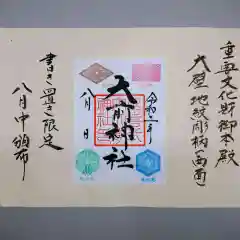 重要文化財御本殿
大壁地紋彫柄(西面)
令和二年
天前神社
八月 日
書き置き限定
八月中頒布